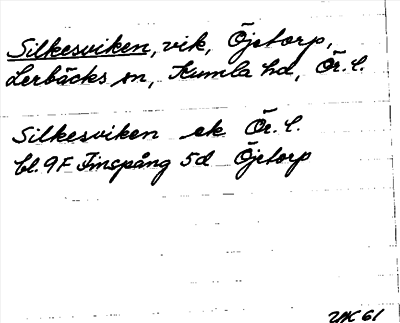 Silkesviken, vik, Öjetorp,
Lerbäcks sn, Kumla hd, Ör. l.
Silkesviken ek Ör. l.
bl. 9F Finspång 5d Öjetorp
UK 61